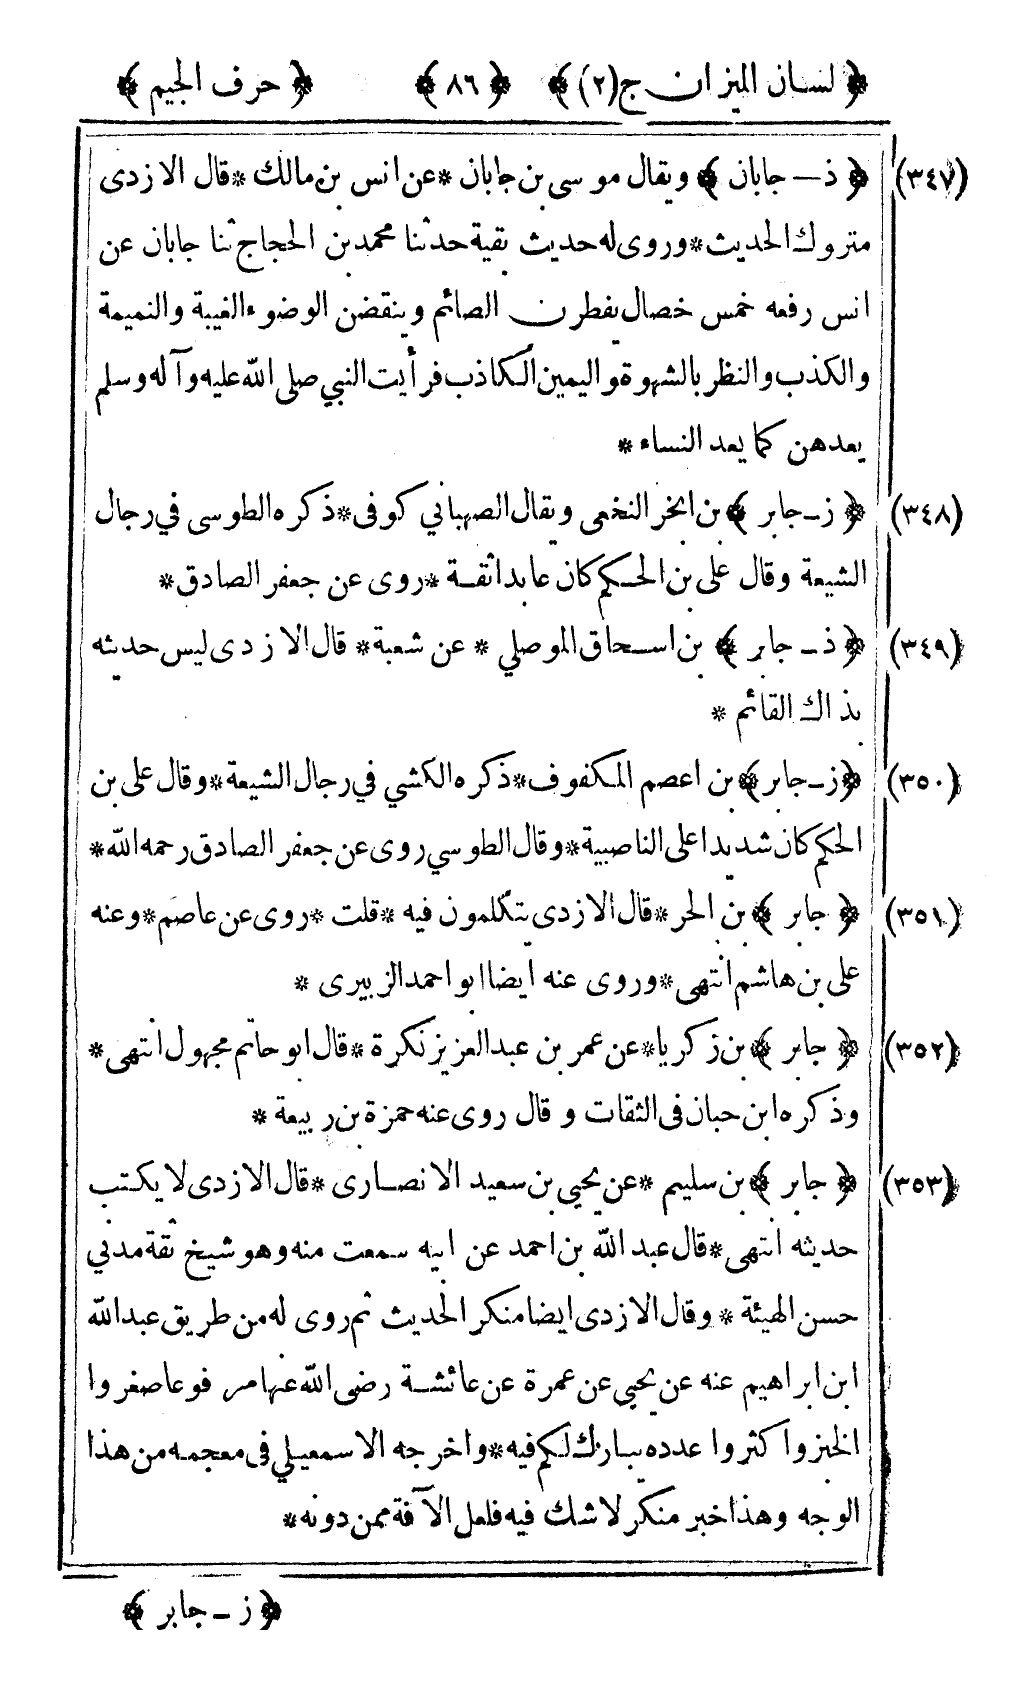 ﴿ لسان الميزان ج(٢) ﴾ ﴿ ٨٦ ﴾ ﴿ حرف الجيم ﴾
(٣٤٧) ﴿ ذ — جابان ﴾ ويقال موسى بن جابان * عن انس بن مالك * قال الازدى
متروك الحديث * وروى له حديث بقية حدثنا محمد بن الحجاج ثنا جابان عن
انس رفعه خمس خصال يفطرن الصائم وينقضن الوضوء الغيبة والنميمة
والكذب والنظر بالشهوة واليمين الكاذب فرأيت النبي صلى الله عليه وآله وسلم
يعدهن كما يعد النساء *
(٣٤٨) ﴿ ز ـ جابر ﴾ بن ابخر النخعى ويقال الصهباني كوفى * ذكره الطوسى في رجال
الشيعة وقال على بن الحكم كان عابدا ثقة * روى عن جعفر الصادق *
(٣٤٩) ﴿ ذ ـ جابر ﴾ بن اسحاق الموصلي * عن شعبة * قال الازدى ليس حديثه
بذاك القائم *
(٣٥٠) ﴿ ز ـ جابر ﴾ بن اعصم المكفوف * ذكره الكشي في رجال الشيعة * وقال على بن
الحكم كان شديدا على الناصبية * وقال الطوسي روى عن جعفر الصادق رحمه الله *
(٣٥١) ﴿ جابر ﴾ بن الحر * قال الازدى يتكلمون فيه * قلت * روى عن عاصم * وعنه
على بن هاشم انتهى * وروى عنه ايضا ابو احمد الزبيرى *
(٣٥٢) ﴿ جابر ﴾ بن زكريا * عن عمر بن عبد العزيز نكرة * قال ابو حاتم مجهول انتهى *
وذكره ابن حبان فى الثقات و قال روى عنه حمزة بن ربيعة *
(٣٥٣) ﴿ جابر ﴾ بن سليم * عن يحيى بن سعيد الانصارى * قال الازدى لا يكتب
حديثه انتهى * قال عبد الله بن احمد عن ابيه سمعت منه وهو شيخ ثقة مدني
حسن الهيئة * وقال الازدى ايضا منكر الحديث ثم روى له من طريق عبد الله
ابن ابراهيم عنه عن يحيى عن عمرة عن عائشة رضى الله عنها مر فوعا صغروا
الخبز واكثروا عدده يبارك لكم فيه * واخرجه الاسمعيلي فى معجمه من هذا
الوجه وهذا خبر منكر لا شك فيه فلعل الآفة ممن دونه *
﴿ ز ـ جابر ﴾